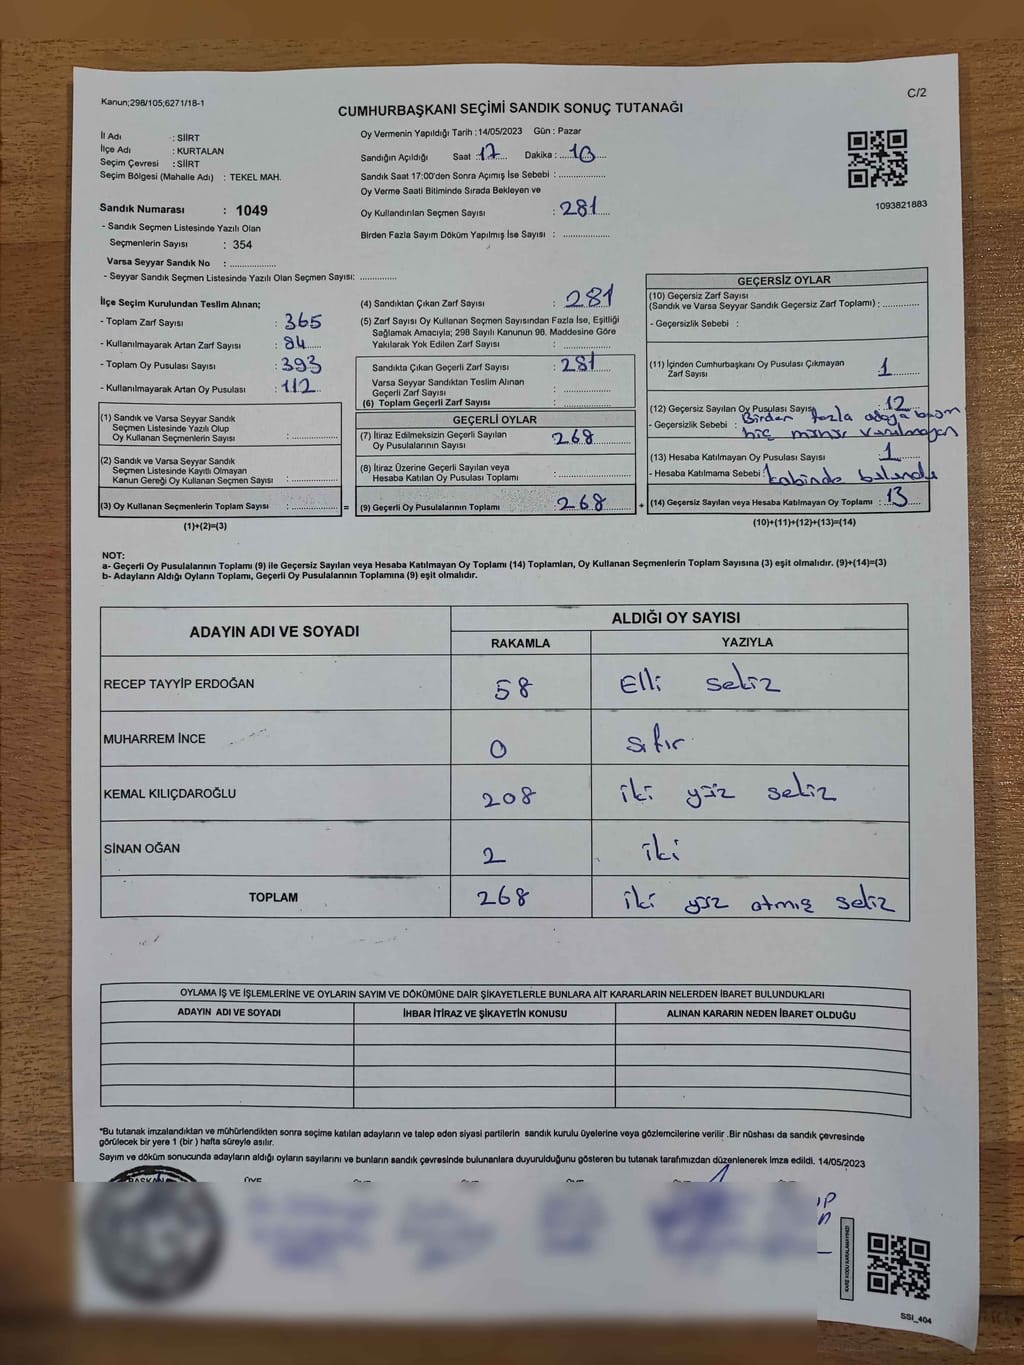 Kanun;298/105;6271/18-1
C/2
CUMHURBAŞKANI SEÇİMİ SANDIK SONUÇ TUTANAĞI
İl Adı : SİİRT
İlçe Adı : KURTALAN
Seçim Çevresi : SİİRT
Seçim Bölgesi (Mahalle Adı) : TEKEL MAH.
Sandık Numarası : 1049
- Sandık Seçmen Listesinde Yazılı Olan
Seçmenlerin Sayısı : 354
Varsa Seyyar Sandık No : ..............
- Seyyar Sandık Seçmen Listesinde Yazılı Olan Seçmen Sayısı: ............
Oy Vermenin Yapıldığı Tarih : 14/05/2023 Gün : Pazar
Sandığın Açıldığı Saat : 17 Dakika : 10
Sandık Saat 17:00'den Sonra Açımış İse Sebebi : ..............
Oy Verme Saati Bitiminde Sırada Bekleyen ve
Oy Kullandırılan Seçmen Sayısı : 281
Birden Fazla Sayım Döküm Yapılmış İse Sayısı : ..............
1093821883
İlçe Seçim Kurulundan Teslim Alınan;
- Toplam Zarf Sayısı : 365
- Kullanılmayarak Artan Zarf Sayısı : 84
- Toplam Oy Pusulası Sayısı : 393
- Kullanılmayarak Artan Oy Pusulası : 112
(1) Sandık ve Varsa Seyyar Sandık
Seçmen Listesinde Yazılı Olup
Oy Kullanan Seçmenlerin Sayısı : ..............
(2) Sandık ve Varsa Seyyar Sandık
Seçmen Listesinde Kayıtlı Olmayan
Kanun Gereği Oy Kullanan Seçmen Sayısı : ..............
(3) Oy Kullanan Seçmenlerin Toplam Sayısı : .............. =
(1)+(2)=(3)
(4) Sandıktan Çıkan Zarf Sayısı : 281
(5) Zarf Sayısı Oy Kullanan Seçmen Sayısından Fazla İse, Eşitliği
Sağlamak Amacıyla; 298 Sayılı Kanunun 98. Maddesine Göre
Yakılarak Yok Edilen Zarf Sayısı : ..............
Sandıkta Çıkan Geçerli Zarf Sayısı : 281
Varsa Seyyar Sandıktan Teslim Alınan
Geçerli Zarf Sayısı : ..............
(6) Toplam Geçerli Zarf Sayısı : ..............
GEÇERLİ OYLAR
(7) İtiraz Edilmeksizin Geçerli Sayılan
Oy Pusulasının Sayısı 268
(8) İtiraz Üzerine Geçerli Sayılan veya
Hesaba Katılan Oy Pusulası Toplamı : ..............
(9) Geçerli Oy Pusulalarının Toplamı : 268 +
GEÇERSİZ OYLAR
(10) Geçersiz Zarf Sayısı
(Sandık ve Varsa Seyyar Sandık Geçersiz Zarf Toplamı) : ............
- Geçersizlik Sebebi :
(11) İçinden Cumhurbaşkanı Oy Pusulası Çıkmayan
Zarf Sayısı : 1
(12) Geçersiz Sayılan Oy Pusulası Sayısı : 12
- Geçersizlik Sebebi : Birden fazla adaya basım
hiç mühür vurulmayan
(13) Hesaba Katılmayan Oy Pusulası Sayısı : 1
- Hesaba Katılmama Sebebi : kabinde bulundu
(14) Geçersiz Sayılan veya Hesaba Katılmayan Oy Toplamı : 13
(10)+(11)+(12)+(13)=(14)
NOT:
a- Geçerli Oy Pusulalarının Toplamı (9) ile Geçersiz Sayılan veya Hesaba Katılmayan Oy Toplamı (14) Toplamları, Oy Kullanan Seçmenlerin Toplam Sayısına (3) eşit olmalıdır. (9)+(14)=(3)
b- Adayların Aldığı Oyların Toplamı, Geçerli Oy Pusulalarının Toplamına (9) eşit olmalıdır.
ADAYIN ADI VE SOYADI
ALDIĞI OY SAYISI
RAKAMLA YAZIYLA
RECEP TAYYİP ERDOĞAN 58 Elli sekiz
MUHARREM İNCE 0 sıfır
KEMAL KILIÇDAROĞLU 208 iki yüz sekiz
SİNAN OĞAN 2 iki
TOPLAM 268 iki yüz atmış sekiz
OYLAMA İŞ VE İŞLEMLERİNE VE OYLARIN SAYIM VE DÖKÜMÜNE DAİR ŞİKAYETLERLE BUNLARA AİT KARARLARIN NELERDEN İBARET BULUNDUKLARI
ADAYIN ADI VE SOYADI İHBAR İTİRAZ VE ŞİKAYETİN KONUSU ALINAN KARARIN NEDEN İBARET OLDUĞU
*Bu tutanak imzalandıktan ve mühürlendikten sonra seçime katılan adayların ve talep eden siyasi partilerin sandık kurulu üyelerine veya gözlemcilerine verilir .Bir nüshası da sandık çevresinde
görülecek bir yere 1 (bir ) hafta süreyle asılır.
Sayım ve döküm sonucunda adayların aldığı oyların sayılarını ve bunların sandık çevresinde bulunanlara duyurulduğunu gösteren bu tutanak tarafımızdan düzenlenerek imza edildi. 14/05/2023
BAŞKAN ÜYE
SSI_404